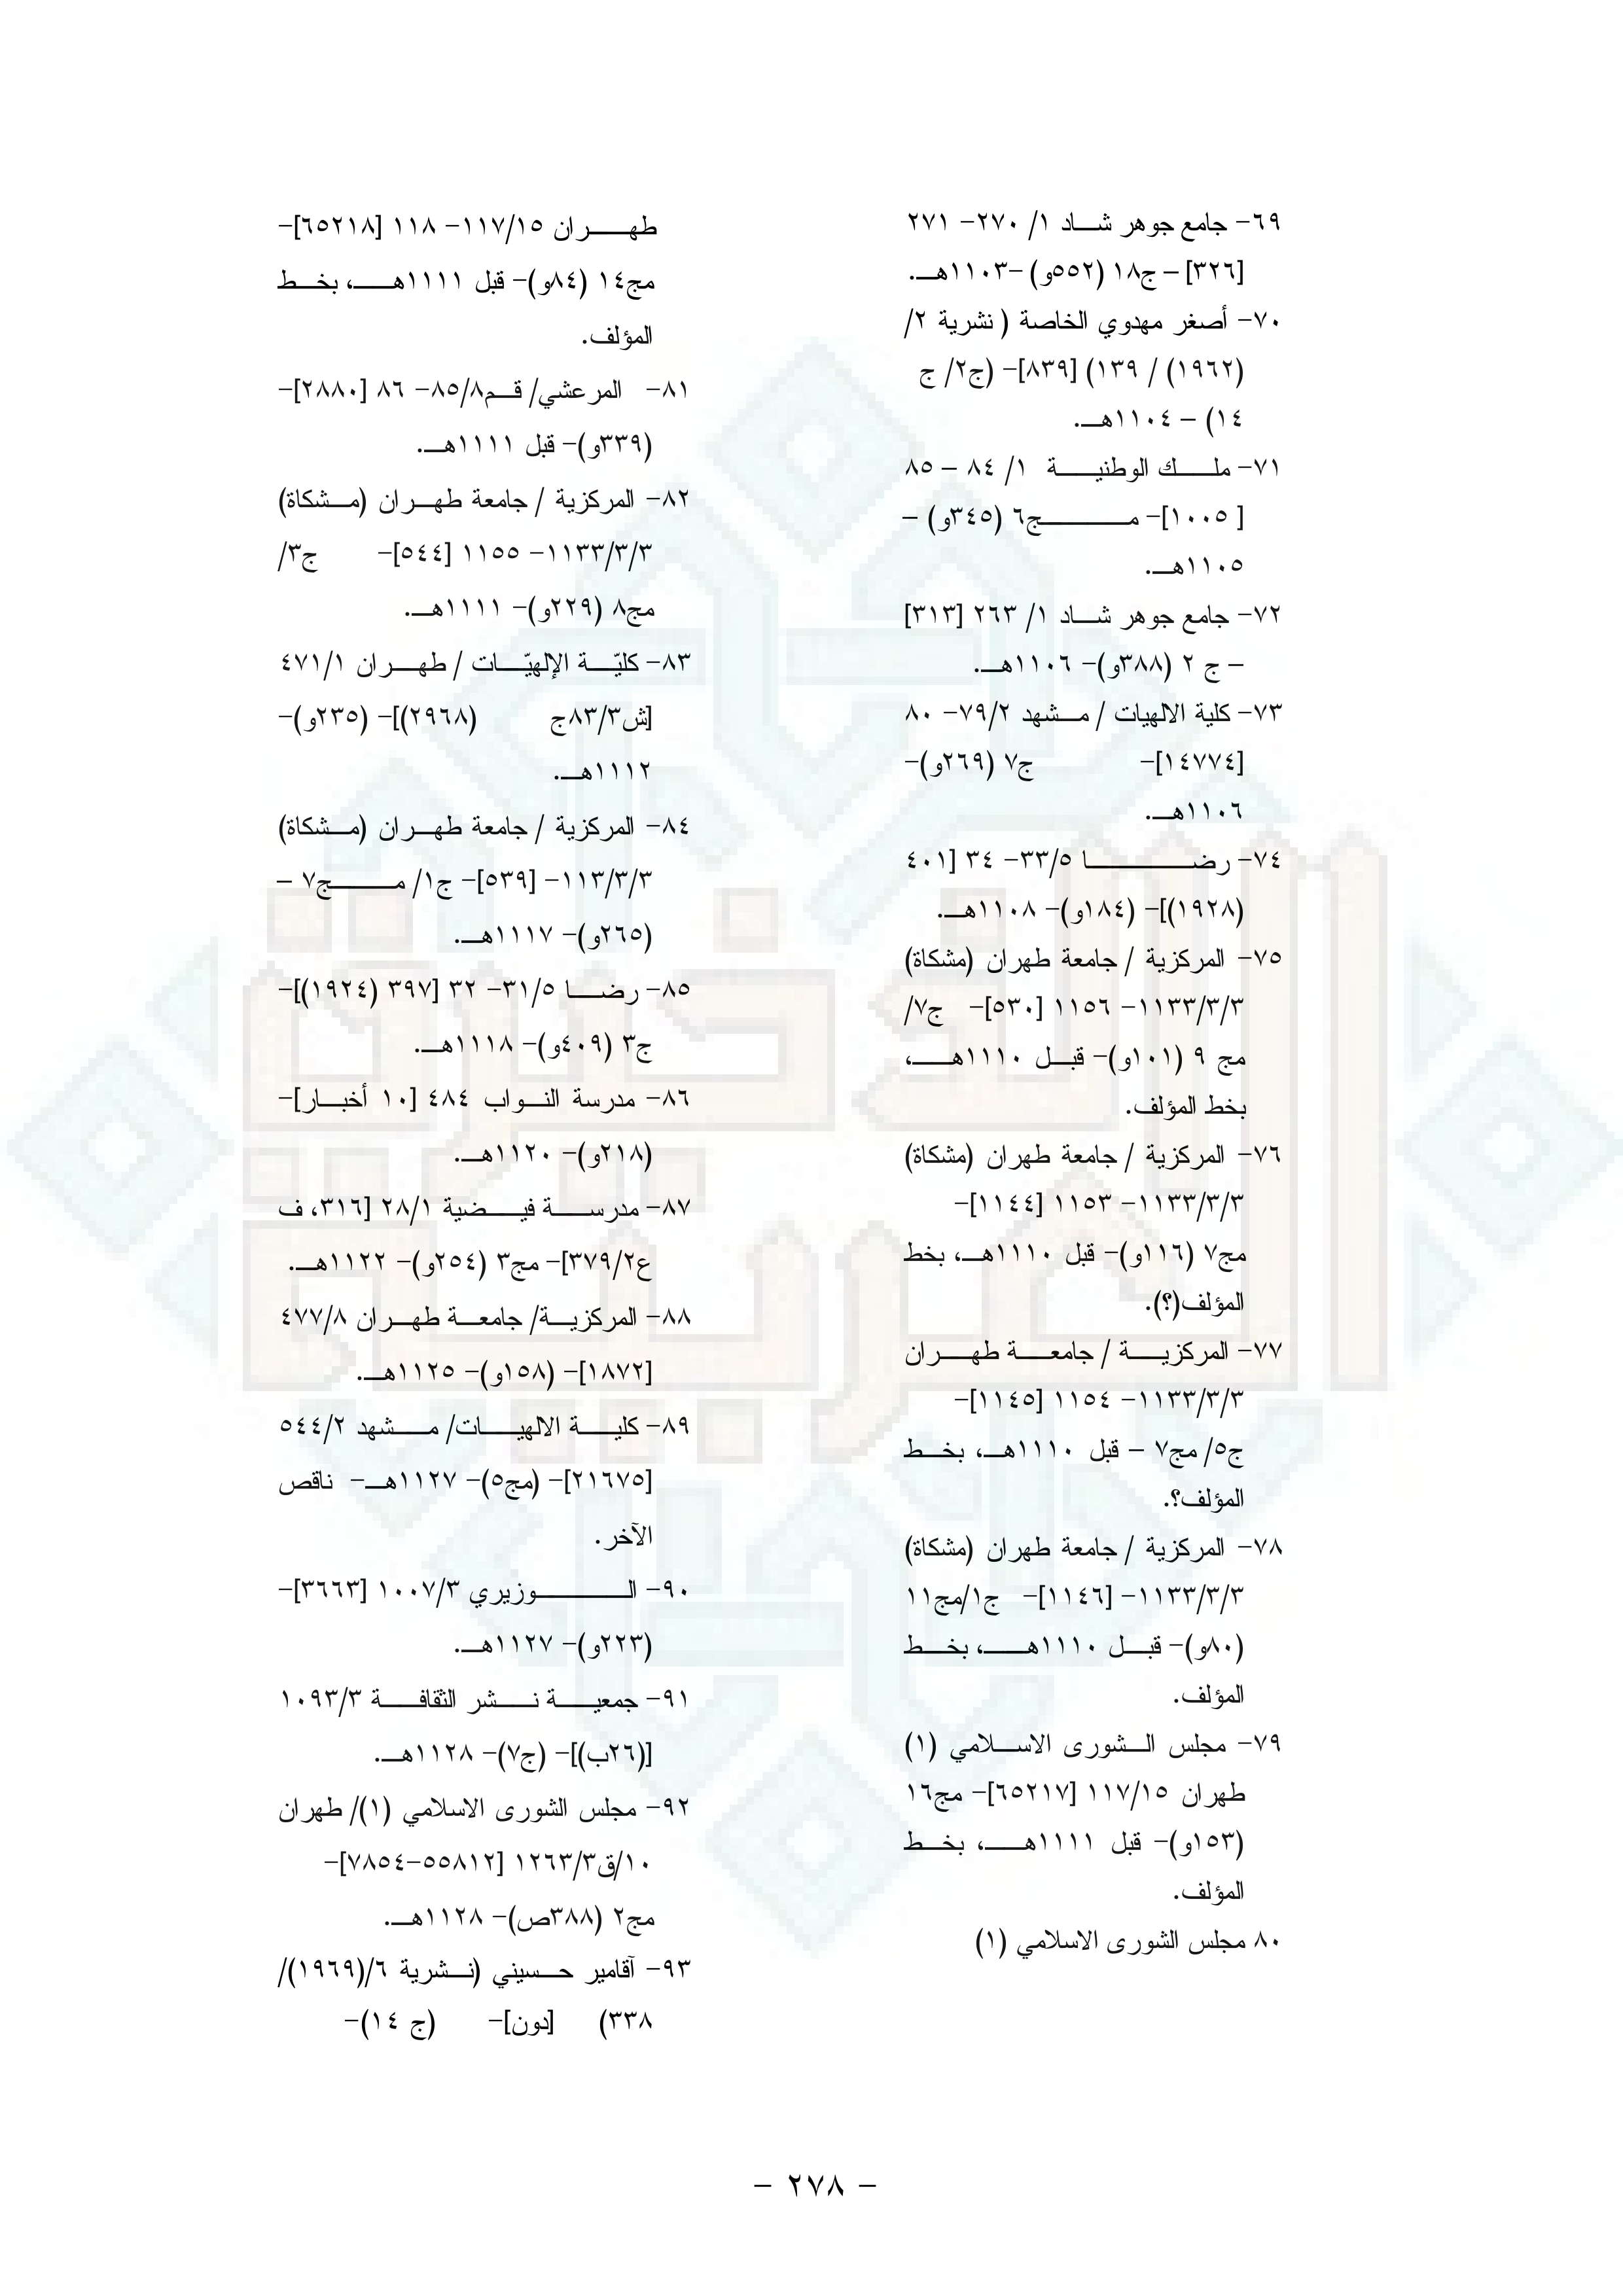 ٦٩- جامع جوهر شاد ١/ ٢٧٠- ٢٧١
[٣٢٦] – ج١٨ (٥٥٢و) -١١٠٣هـ.
٧٠- أصغر مهدوي الخاصة ( نشرية ٢/
(١٩٦٢) / ١٣٩) [٨٣٩]- (ج٢/ ج
١٤) – ١١٠٤هـ.
٧١- ملك الوطنية ١/ ٨٤ – ٨٥
[ ١٠٠٥]- مج٦ (٣٤٥و) –
١١٠٥هـ.
٧٢- جامع جوهر شاد ١/ ٢٦٣ [٣١٣]
– ج ٢ (٣٨٨و)- ١١٠٦هـ.
٧٣- كلية الالهيات / مشهد ٧٩/٢- ٨٠
[١٤٧٧٤]- ج٧ (٢٦٩و)-
١١٠٦هـ.
٧٤- رضا ٣٣/٥- ٣٤ [٤٠١
(١٩٢٨)]- (١٨٤و)- ١١٠٨هـ.
٧٥- المركزية / جامعة طهران (مشكاة)
١١٣٣/٣/٣- ١١٥٦ [٥٣٠]- ج٧/
مج ٩ (١٠١و)- قبل ١١١٠هـ،
بخط المؤلف.
٧٦- المركزية / جامعة طهران (مشكاة)
١١٣٣/٣/٣- ١١٥٣ [١١٤٤]-
مج٧ (١١٦و)- قبل ١١١٠هـ، بخط
المؤلف(؟).
٧٧- المركزية / جامعة طهران
١١٣٣/٣/٣- ١١٥٤ [١١٤٥]-
ج٥/ مج٧ – قبل ١١١٠هـ، بخط
المؤلف؟.
٧٨- المركزية / جامعة طهران (مشكاة)
١١٣٣/٣/٣- [١١٤٦]- ج١/مج١١
(٨٠و)- قبل ١١١٠هـ، بخط
المؤلف.
٧٩- مجلس الشورى الاسلامي (١)
طهران ١١٧/١٥ [٦٥٢١٧]- مج١٦
(١٥٣و)- قبل ١١١١هـ، بخط
المؤلف.
٨٠ مجلس الشورى الاسلامي (١)
طهران ١١٧/١٥- ١١٨ [٦٥٢١٨]-
مج١٤ (٨٤و)- قبل ١١١١هـ، بخط
المؤلف.
٨١- المرعشي/ قم٨٥/٨- ٨٦ [٢٨٨٠]-
(٣٣٩و)- قبل ١١١١هـ.
٨٢- المركزية / جامعة طهران (مشكاة)
١١٣٣/٣/٣- ١١٥٥ [٥٤٤]- ج٣/
مج٨ (٢٢٩و)- ١١١١هـ.
٨٣- كليّة الإلهيّات / طهران ٤٧١/١
[ش٨٣/٣ج (٢٩٦٨)]- (٢٣٥و)-
١١١٢هـ.
٨٤- المركزية / جامعة طهران (مشكاة)
١١٣/٣/٣- [٥٣٩]- ج١/ مج٧ –
(٢٦٥و)- ١١١٧هـ.
٨٥- رضا ٣١/٥- ٣٢ [٣٩٧ (١٩٢٤)]-
ج٣ (٤٠٩و)- ١١١٨هـ.
٨٦- مدرسة النواب ٤٨٤ [١٠ أخبار]-
(٢١٨و)- ١١٢٠هـ.
٨٧- مدرسة فيضية ٢٨/١ [٣١٦، ف
ع٣٧٩/٢]- مج٣ (٢٥٤و)- ١١٢٢هـ.
٨٨- المركزية/ جامعة طهران ٤٧٧/٨
[١٨٧٢]- (١٥٨و)- ١١٢٥هـ.
٨٩- كلية الالهيات/ مشهد ٥٤٤/٢
[٢١٦٧٥]- (مج٥)- ١١٢٧هـ- ناقص
الآخر.
٩٠- الوزيري ١٠٠٧/٣ [٣٦٦٣]-
(٢٢٣و)- ١١٢٧هـ.
٩١- جمعية نشر الثقافة ١٠٩٣/٣
[(٢٦ب)]- (ج٧)- ١١٢٨هـ.
٩٢- مجلس الشورى الاسلامي (١)/ طهران
١٠/ق١٢٦٣/٣ [٥٥٨١٢-٧٨٥٤]-
مج٢ (٣٨٨ص)- ١١٢٨هـ.
٩٣- آقامير حسيني (نشرية ٦/(١٩٦٩)/
٣٣٨) [دون]- (ج ١٤)-
- ٢٧٨ -